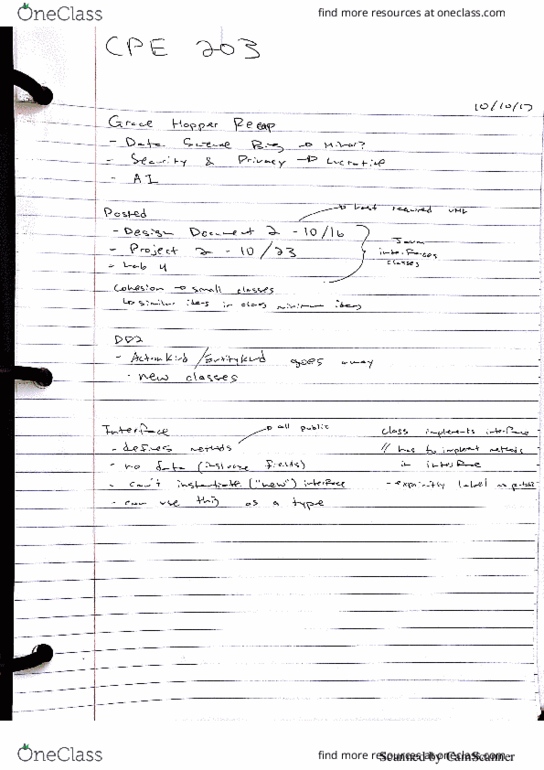 OneClass
find more resources at oneclass.com
CPE 203
10/10/17
Grace Hopper Recap
- Data Science Bing → Minor?
- Security & Privacy → Lucrative
- AI
Posted → last required UML
- Design Document 2 - 10/16
- Project 2 - 10/23
- Lab 4
Java
interfaces
classes
Cohesion → small classes
↳ similar items in class minimum items
DD2
- ActionKind/EntityKind goes away
- new classes
Interface → all public
- defines methods
- no data (instance fields)
- can't instantiate ("new") interface
- can use this as a type
class implements interface
// has to implement methods
in interface
- explicitly label as public
OneClass
find more resources at oneclass.com
Scanned by CamScanner